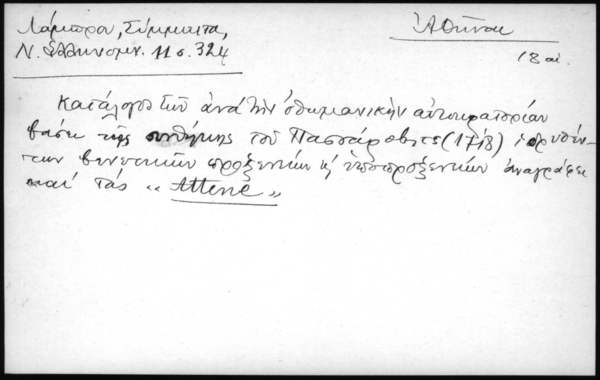 Λάμπρου, Σύμμικτα,
Ν. Ἑλληνομν. 11 σ. 324
Ἀθῆναι
18 αἰ.
Κατάλογος τῶν ἀνὰ τὴν ὀθωμανικὴν αὐτοκρατορίαν
βάσει τῆς συνθήκης τοῦ Πασσάροβιτς (1718) ἱδρυθέν-
των βενετικῶν προξενείων κ' ὑποπροξενείων ἀναγράφει
καὶ τὰς « Attene »